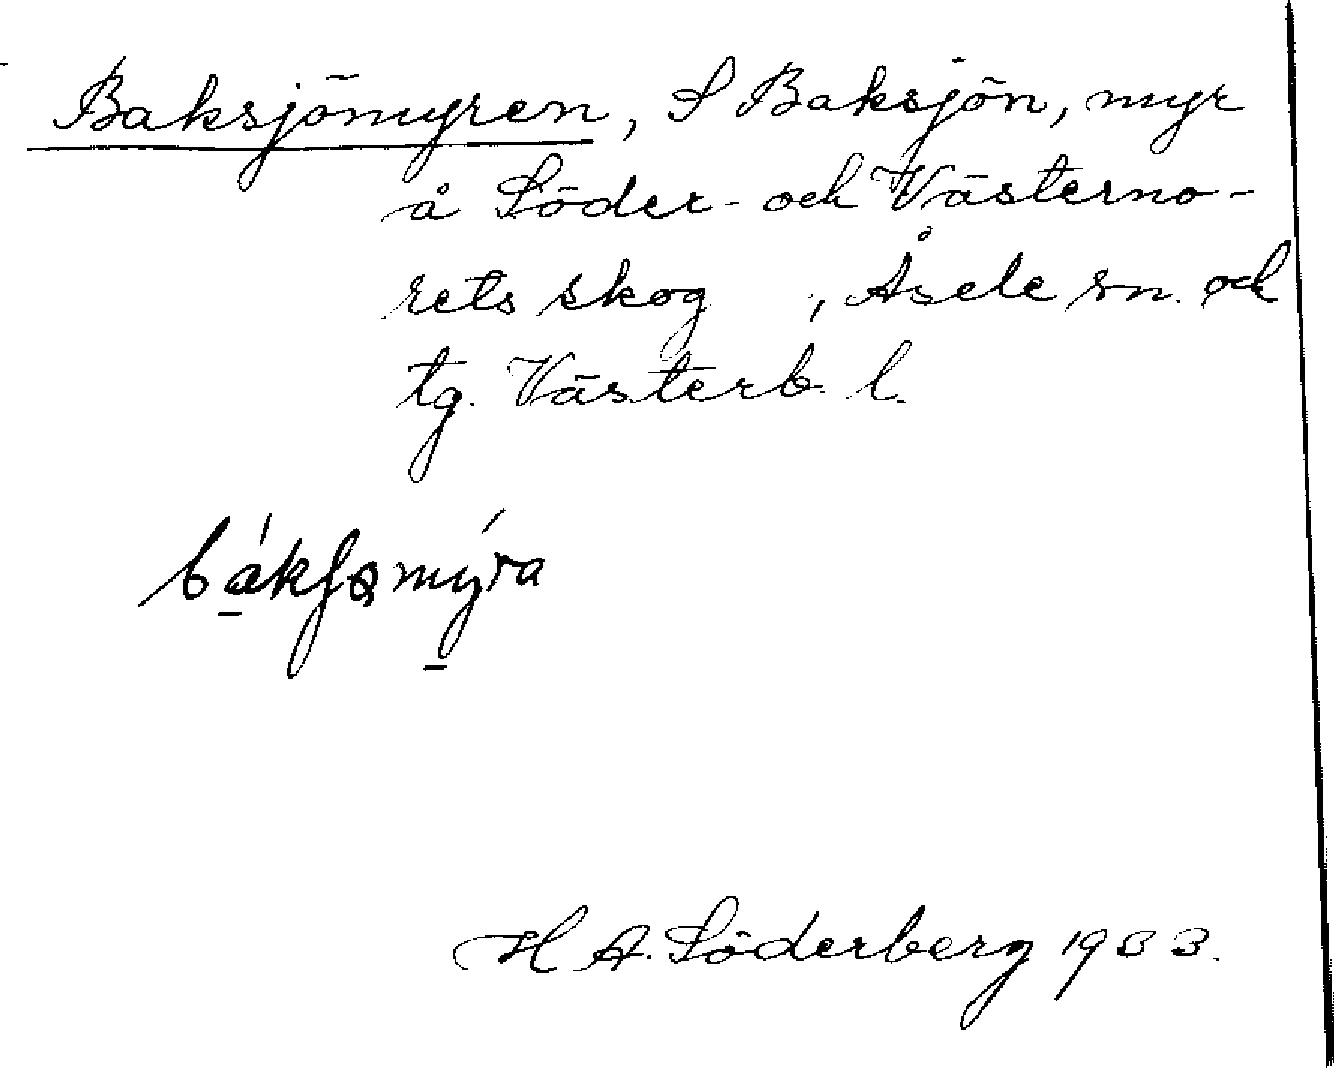 Baksjömyren, S Baksjön, myr
å Söder- och Västerno-
rets skog , Åsele sn. och
tg. Västerb. l.
H A. Söderberg 1933.